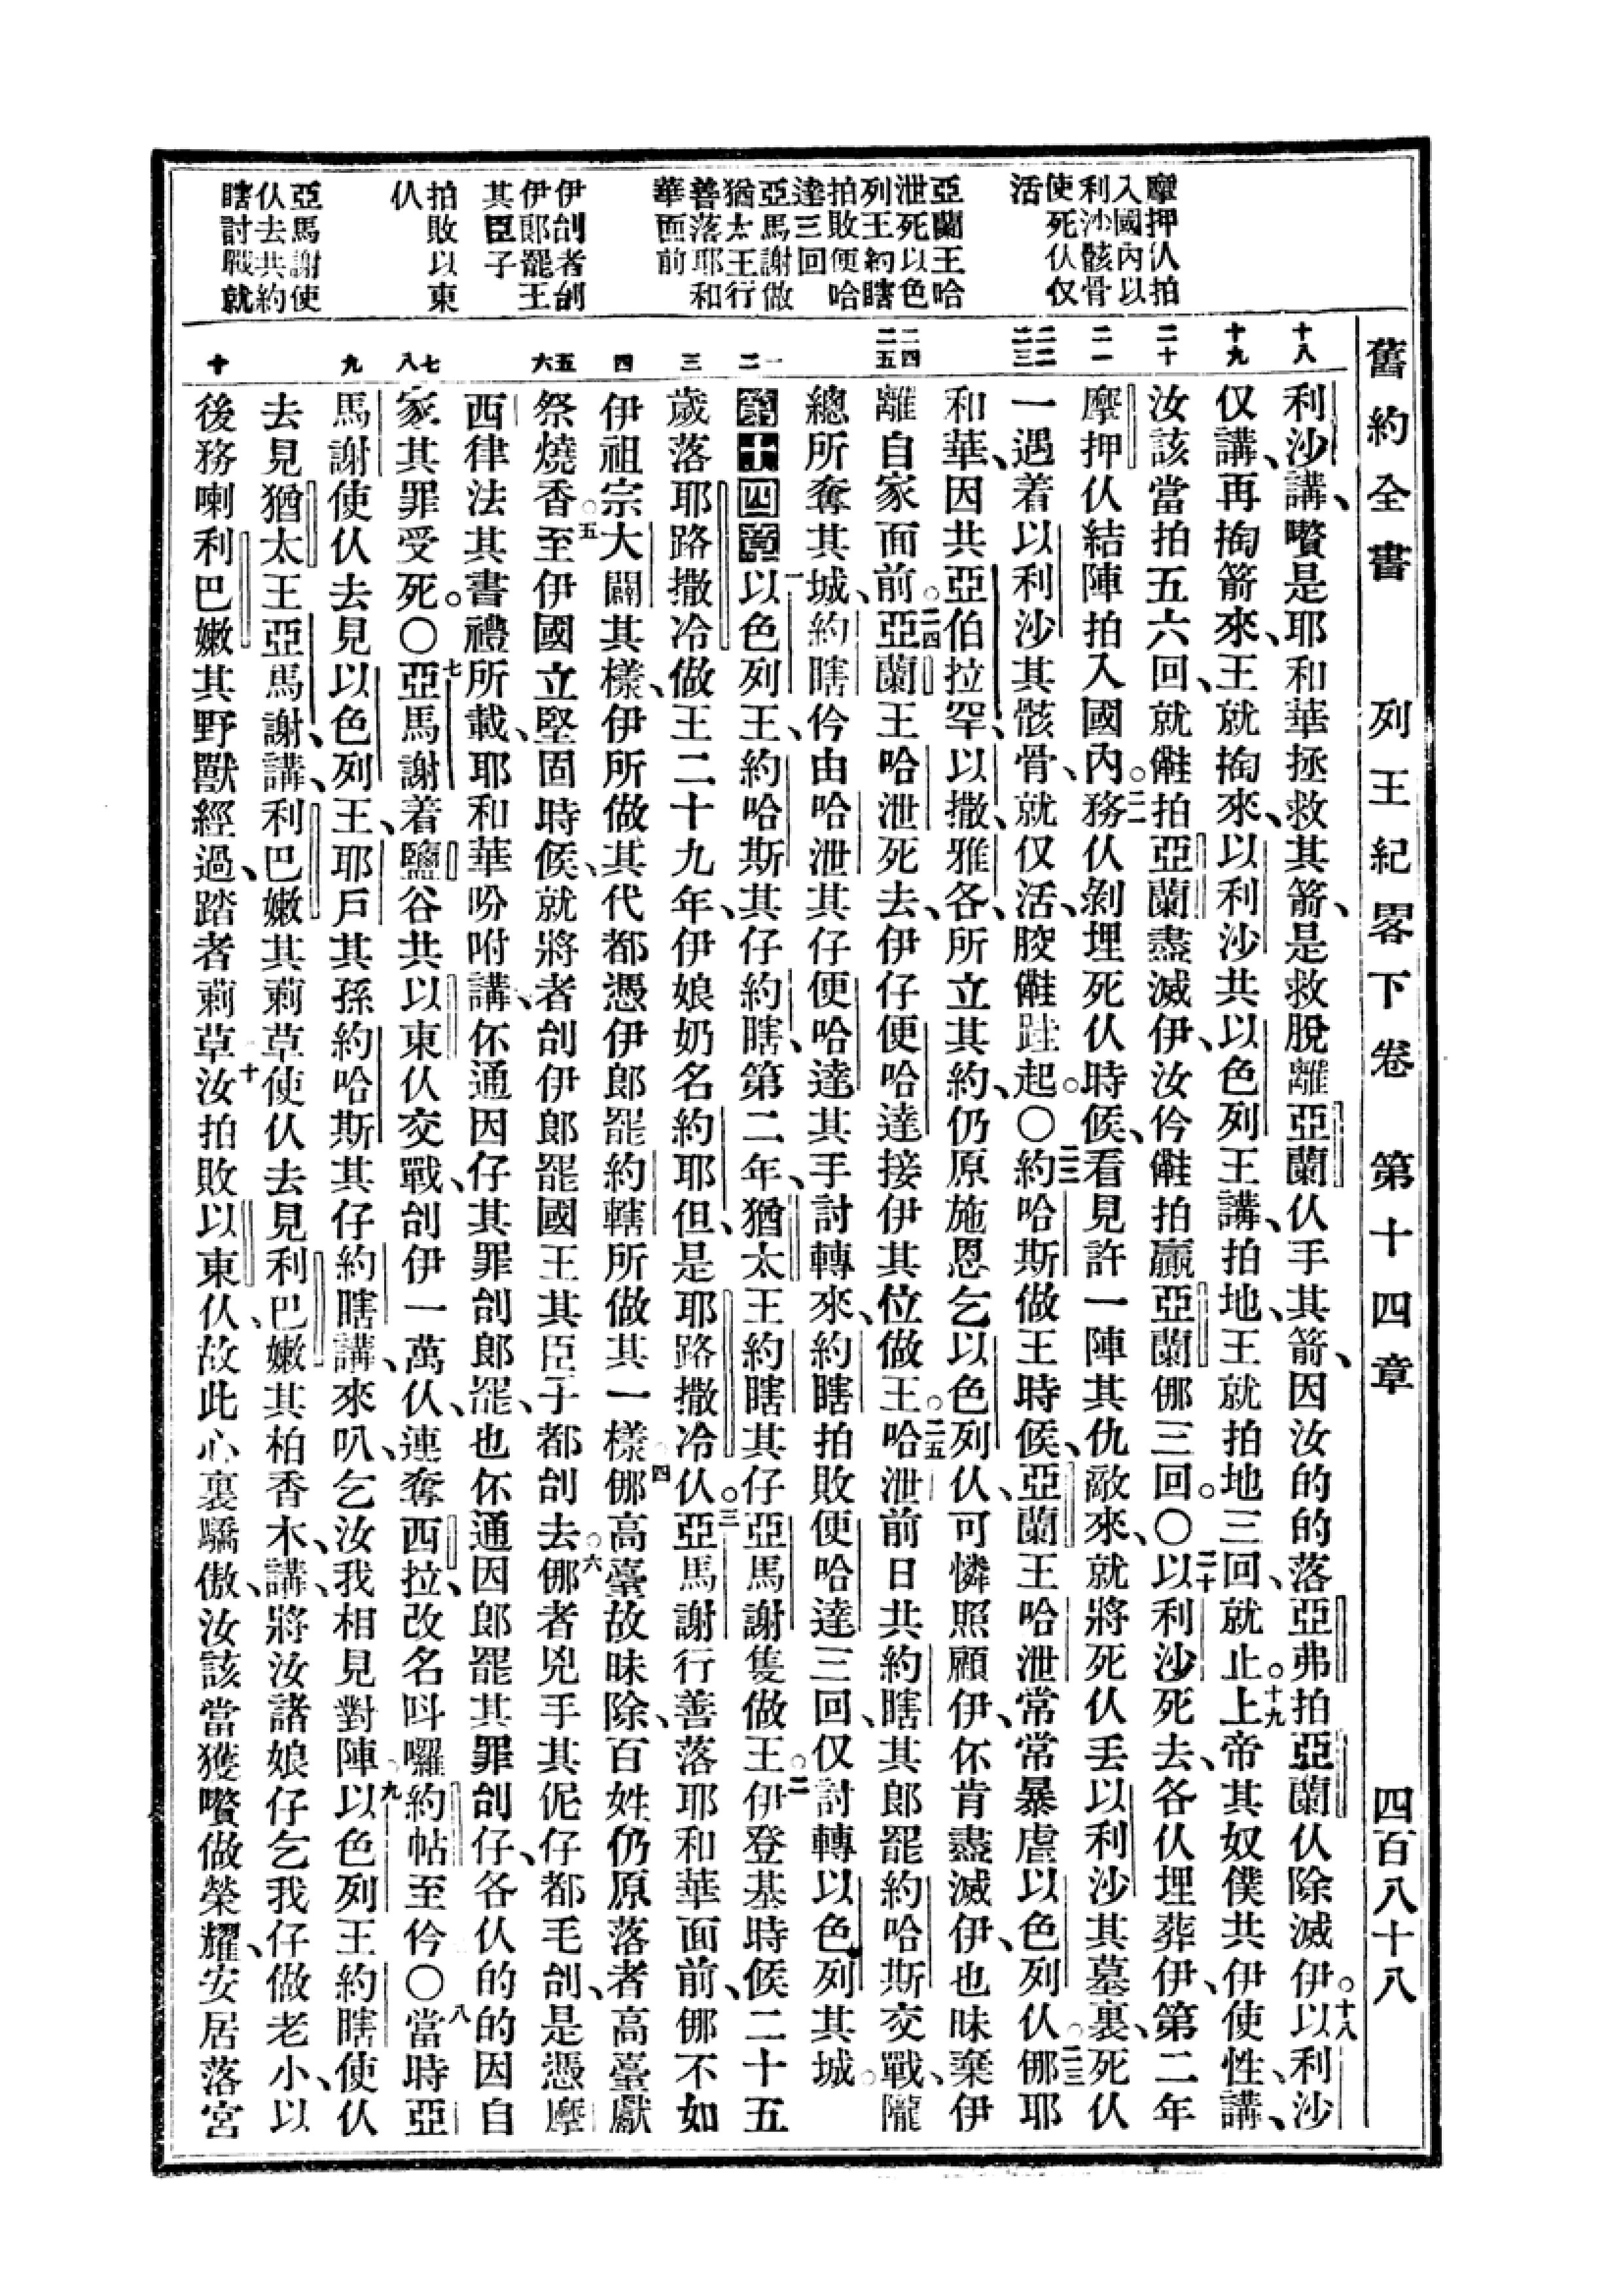 舊約全書 列王紀畧下卷 第十四章 四百八十八
摩押仈拍
入國內以
利沙骸骨
使死仈仅
活
亞蘭王哈
泄死以色
列王約瞎
拍敗便哈
達三回
亞馬謝做
猶太王行
善落耶和
華面前
伊刣者刣
伊郎罷王
其臣子
拍敗以東
仈
亞馬謝使
仈去共約
瞎討戰就
十八
十九
二十
二一
二二
二三
二四
二五
一
二
三
四
五
六
七
八
九
十
利沙講、囋是耶和華拯救其箭、是救脫離亞蘭仈手其箭、因汝的的落亞弗拍亞蘭仈除滅伊。十八以利沙
仅講、再掏箭來、王就掏來、以利沙共以色列王講、拍地、王就拍地三回、就止。十九上帝其奴僕共伊使性、講、
汝該當拍五六回、就𣍐拍亞蘭盡滅伊、汝仱𣍐拍贏亞蘭㑚三回。〇二十以利沙死去、各仈埋葬伊、第二年
摩押仈結陣拍入國內。二一務仈剝埋死仈時候、看見許一陣其仇敵來、就將死仈丟以利沙其墓裏、死仈
一遇着以利沙其骸骨、就仅活、骹𣍐跬起。〇二二約哈斯做王時候、亞蘭王哈泄常常暴虐以色列仈。二三㑚耶
和華、因共亞伯拉罕、以撒、雅各、所立其約、仍原施恩乞以色列仈、可憐照顧伊、伓肯盡滅伊、也昧棄伊
離自家面前。二四亞蘭王哈泄死去、伊仔便哈達接伊其位做王。二五哈泄前日共約瞎其郎罷約哈斯交戰、隴
總所奪其城、約瞎仱由哈泄其仔便哈達其手討轉來、約瞎拍敗便哈達三回、仅討轉以色列其城。
第十四章一以色列王、約哈斯其仔約瞎、第二年、猶太王約瞎其仔亞馬謝隻做王。二伊登基時候二十五
歲落耶路撒冷做王二十九年、伊娘奶名約耶但、是耶路撒冷仈。三亞馬謝行善落耶和華面前、㑚不如
伊祖宗大闢其樣、伊所做其代都憑伊郎罷約轄所做其一樣。四㑚高臺故昧除、百姓仍原落者高臺獻
祭燒香。五至伊國立堅固時候、就將者刣伊郎罷國王其臣子都刣去。六㑚者兇手其伲仔都毛刣、是憑摩
西律法其書禮所載、耶和華吩咐講、伓通因仔其罪刣郎罷、也伓通因郎罷其罪刣仔、各仈的的因自
家其罪受死。〇七亞馬謝着鹽谷共以東仈交戰、刣伊一萬仈、連奪西拉、改名呌囉約帖至仱〇八當時亞
馬謝使仈去見以色列王、耶戶其孫約哈斯其仔約瞎講、來叭、乞汝我相見對陣。九以色列王約瞎使仈
去見猶太王亞馬謝、講、利巴嫩其莿草使仈去見利巴嫩其柏香木、講、將汝諸娘仔乞我仔做老小、以
後務喇利巴嫩其野獸經過、踏者莿草。十汝拍敗以東仈、故此心裏驕傲、汝該當獲囋做榮耀、安居落宮